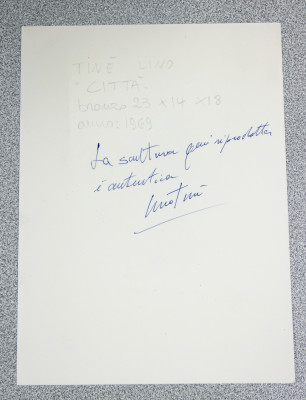 TINÉ LINO
"CITTÀ"
bronzo 25 x 14 x 18
anno: 1969
La scultura qui riprodotta
è autentica
Lino Tiné